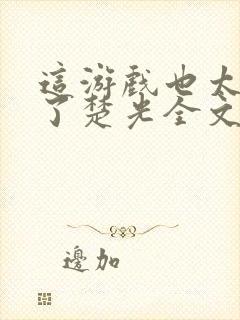 這游戲也太
了楚光全文
邊加